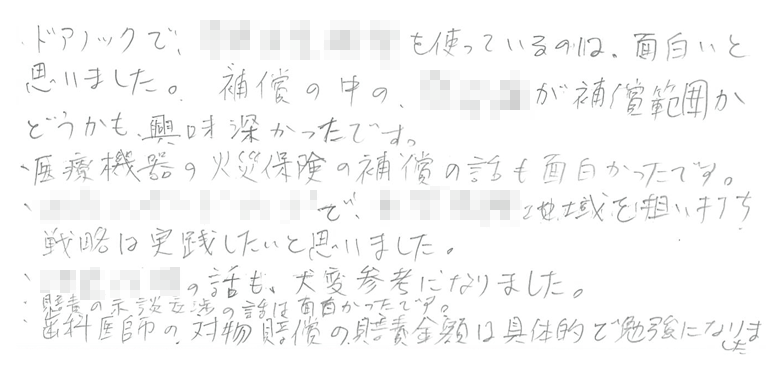 ドアノックで、も使っているのは、面白いと
思いました。 補償の中の、が補償範囲か
どうかも、興味深かったです。
、医療機器の火災保険の補償の話も面白かったです。
、で、地域を狙いまうち
戦略は実践したいと思いました。
、の話も、大変参考になりました。
、賠責の示談交渉の話は面白かったです。
、歯科医師の、対物賠償の賠責金額は具体的で勉強になりました